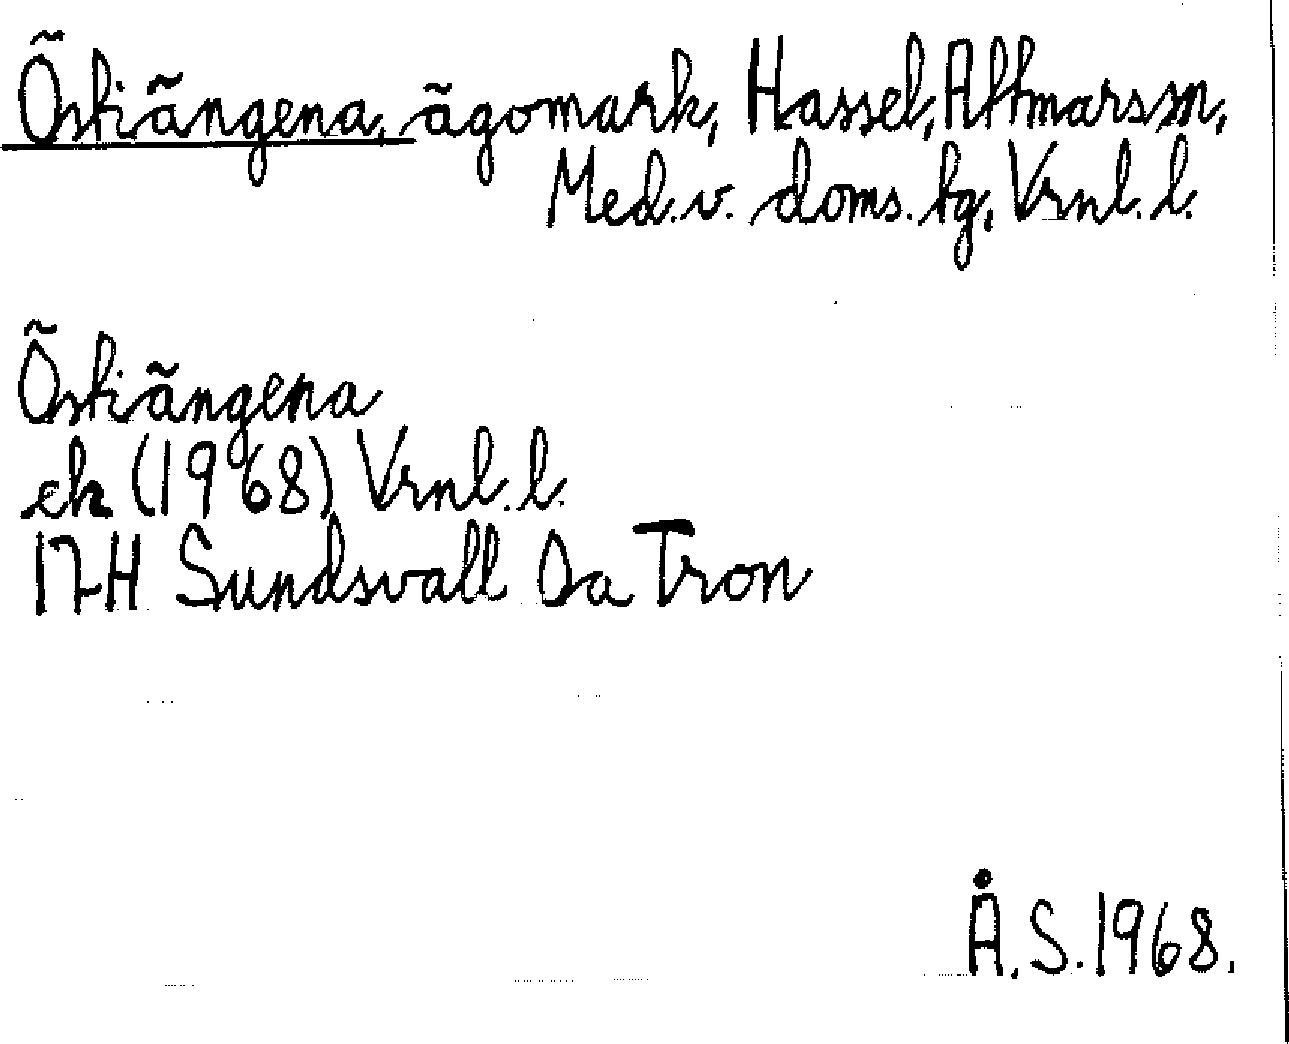 Östiängena, ägomark, Hassel, Attmarssn,
Med.v. doms.tg, Vrnl.l.
Östiängena
ek (1968) Vrnl.l.
17H Sundsvall Oa Tron
Å.S. 1968.